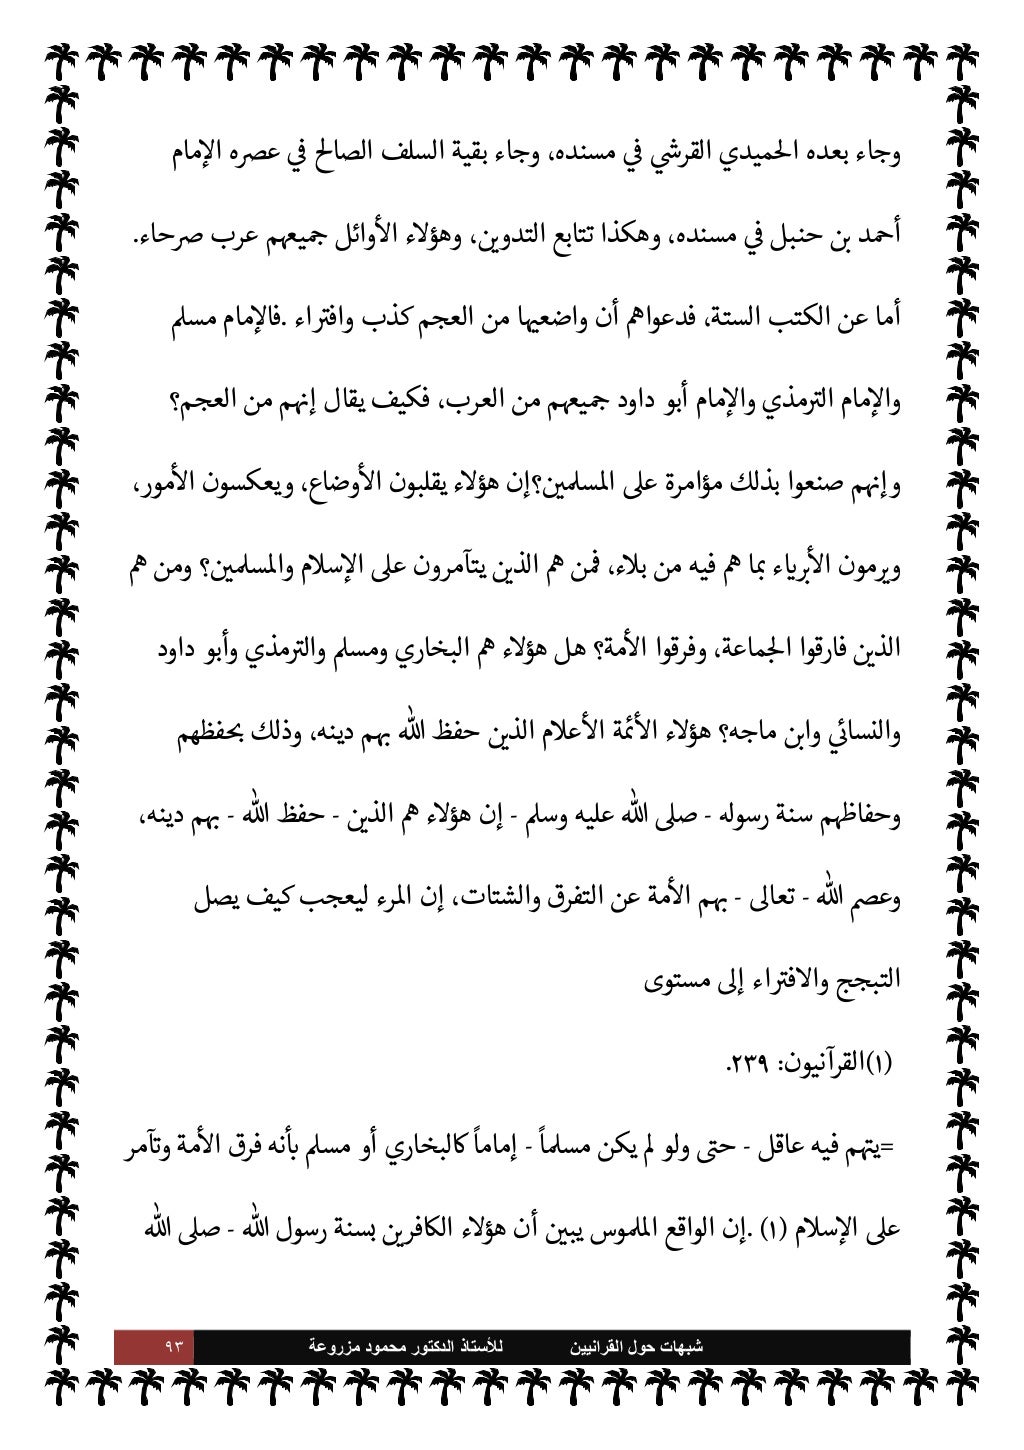 وجاء بعده الحميدي القرشي في مسنده، وجاء بقية السلف الصالح في عصره الإمام
أحمد بن حنبل في مسنده، وهكذا تتابع التدوين، وهؤلاء الأوائل جميعهم عرب صرحاء.
أما عن الكتب الستة، فدعواهم أن واضعيها من العجم كذب وافتراء .فالإمام مسلم
والإمام الترمذي والإمام أبو داود جميعهم من العرب، فكيف يقال إنهم من العجم؟
وإنهم صنعوا بذلك مؤامرة على المسلمين؟إن هؤلاء يقلبون الأوضاع، ويعكسون الأمور،
ويرمون الأبرياء بما هم فيه من بلاء، فمن هم الذين يتآمرون على الإسلام والمسلمين؟ ومن هم
الذين فارقوا الجماعة، وفرقوا الأمة؟ هل هؤلاء هم البخاري ومسلم والترمذي وأبو داود
والنسائي وابن ماجه؟ هؤلاء الأئمة الأعلام الذين حفظ الله بهم دينه، وذلك بحفظهم
وحفاظهم سنة رسوله - صلى الله عليه وسلم - إن هؤلاء هم الذين - حفظ الله - بهم دينه،
وعصم الله - تعالى - بهم الأمة عن التفرق والشتات، إن المرء ليعجب كيف يصل
التبجح والافتراء إلى مستوى
(١)القرآنيون: ٢٣٩.
=يتهم فيه عاقل - حتى ولو لم يكن مسلماً - إماماً كالبخاري أو مسلم بأنه فرق الأمة وتآمر
على الإسلام (١) .إن الواقع الملموس يبين أن هؤلاء الكافرين بسنة رسول الله - صلى الله
شبهات حول القرانيين للأستاذ الدكتور محمود مزروعة ٩٣